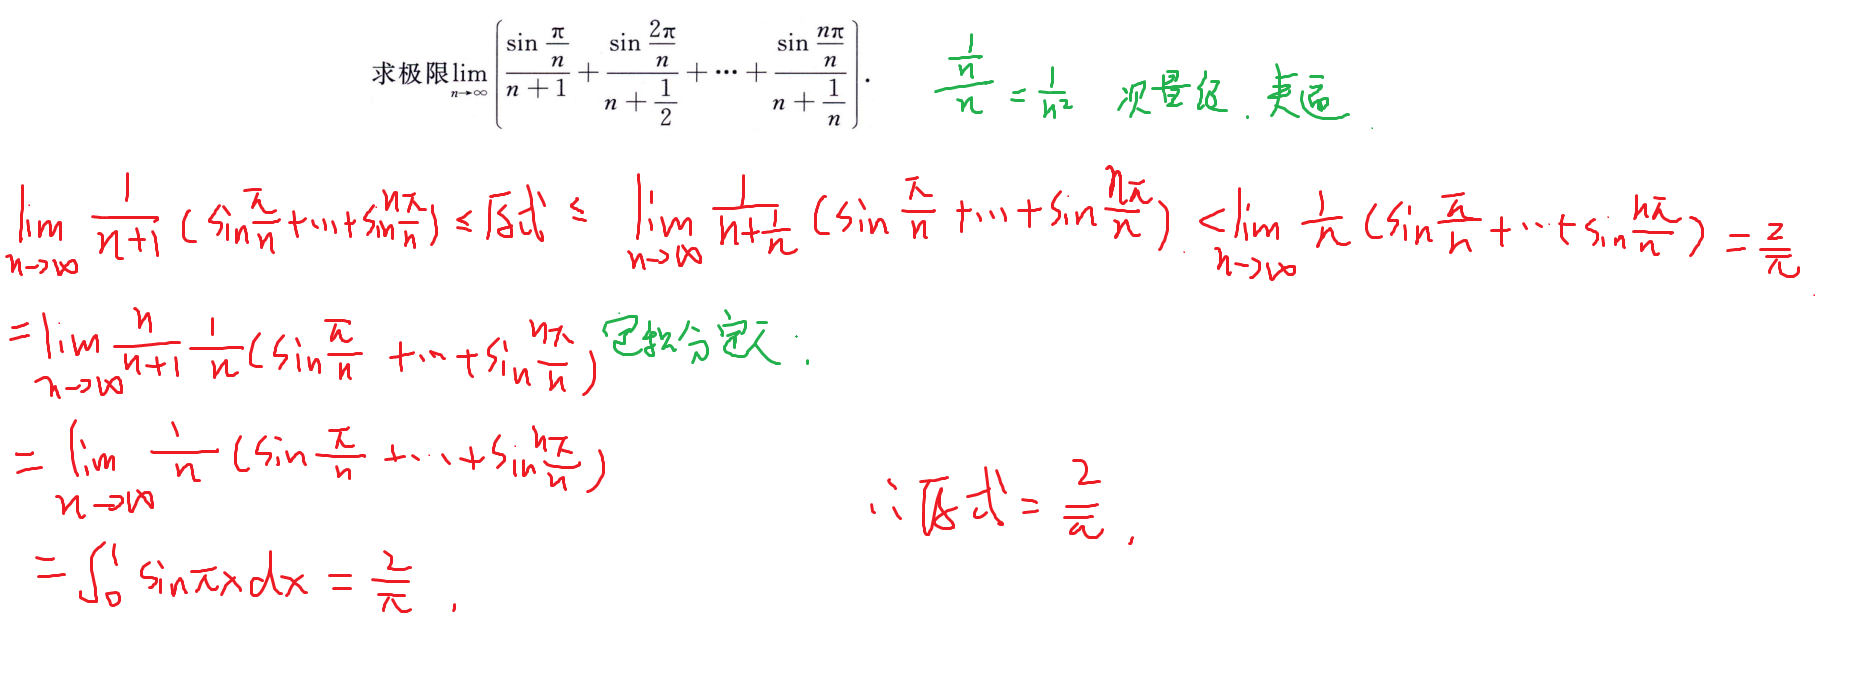 求极限 lim_{n→∞} [ (sin π/n)/(n+1) + (sin 2π/n)/(n+1/2) + ⋯ + (sin nπ/n)/(n+1/n) ].
(1/n)/n = 1/n² 次量级. 夹逼.
lim_{n→∞} 1/(n+1) (sin π/n + ⋯ + sin nπ/n) ≤ 原式 ≤ lim_{n→∞} 1/(n+1/n) (sin π/n + ⋯ + sin nπ/n). < lim_{n→∞} 1/n (sin π/n + ⋯ + sin nπ/n) = 2/π
= lim_{n→∞} n/(n+1) 1/n (sin π/n + ⋯ + sin nπ/n) 定积分定义.
= lim_{n→∞} 1/n (sin π/n + ⋯ + sin nπ/n)
∴ 原式 = 2/π.
= ∫₀¹ sinπx dx = 2/π.